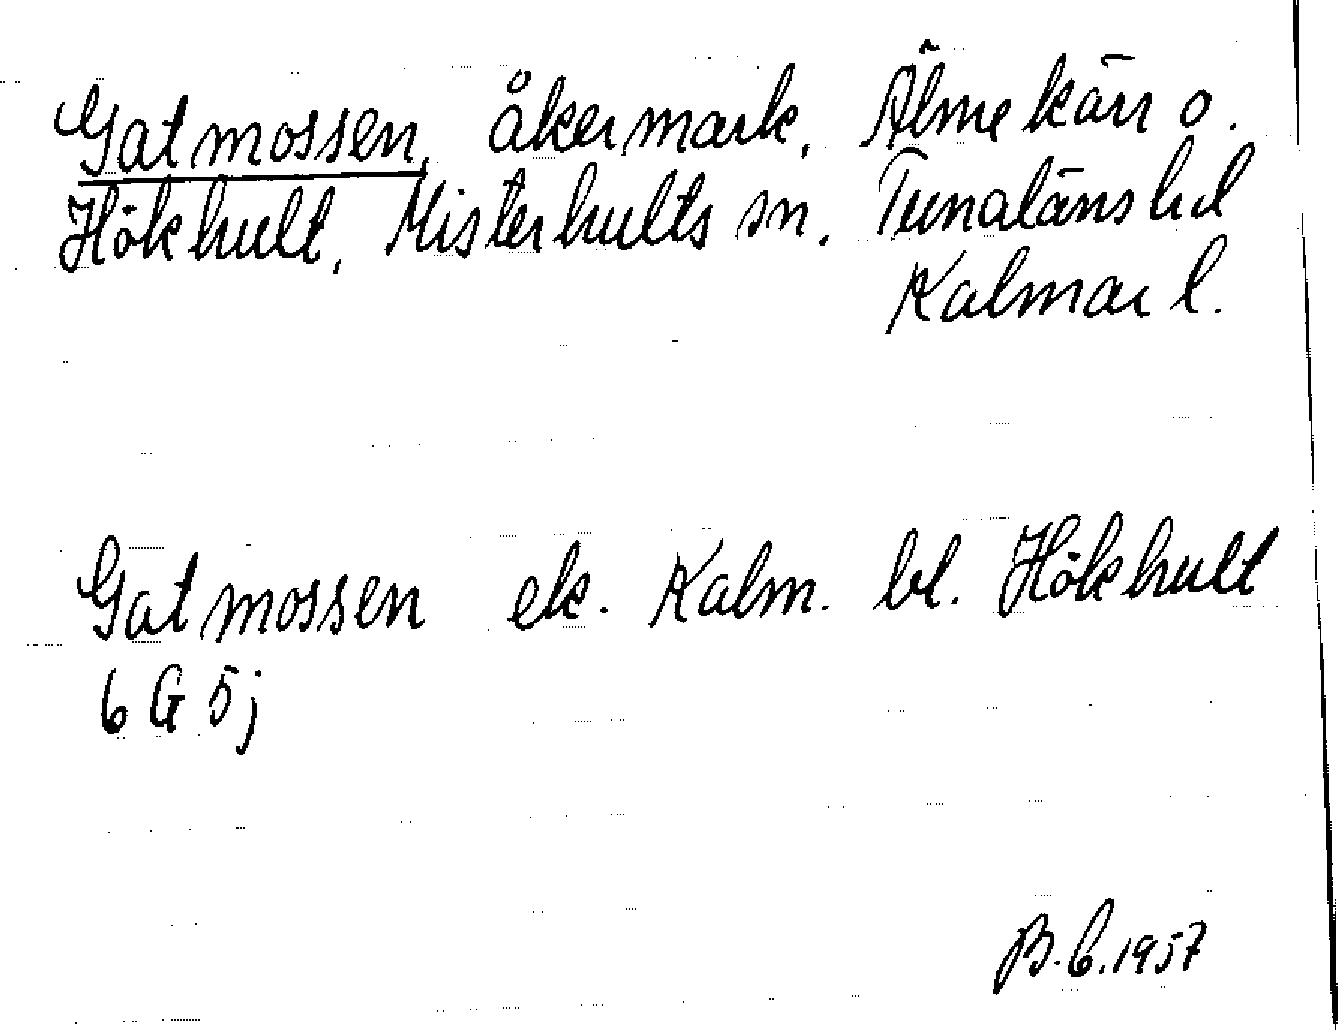 Gatmossen, åkermark, Älmekärr o.
Hökhult, Misterhults sn, Tunaläns hd
Kalmar l.
Gatmossen ek. Kalm. bl. Hökhult
6 G 5j
B.C. 1957